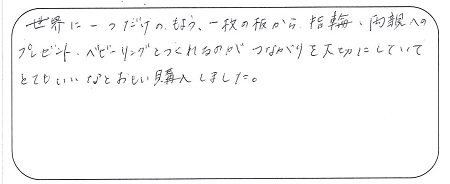 世界に一つだけの、もよう、一枚の板から 指輪、両親への
プレゼント、ベビーリングとつくれるのが つながりを大切にしていて
とてもいいなとおもい購入しました。